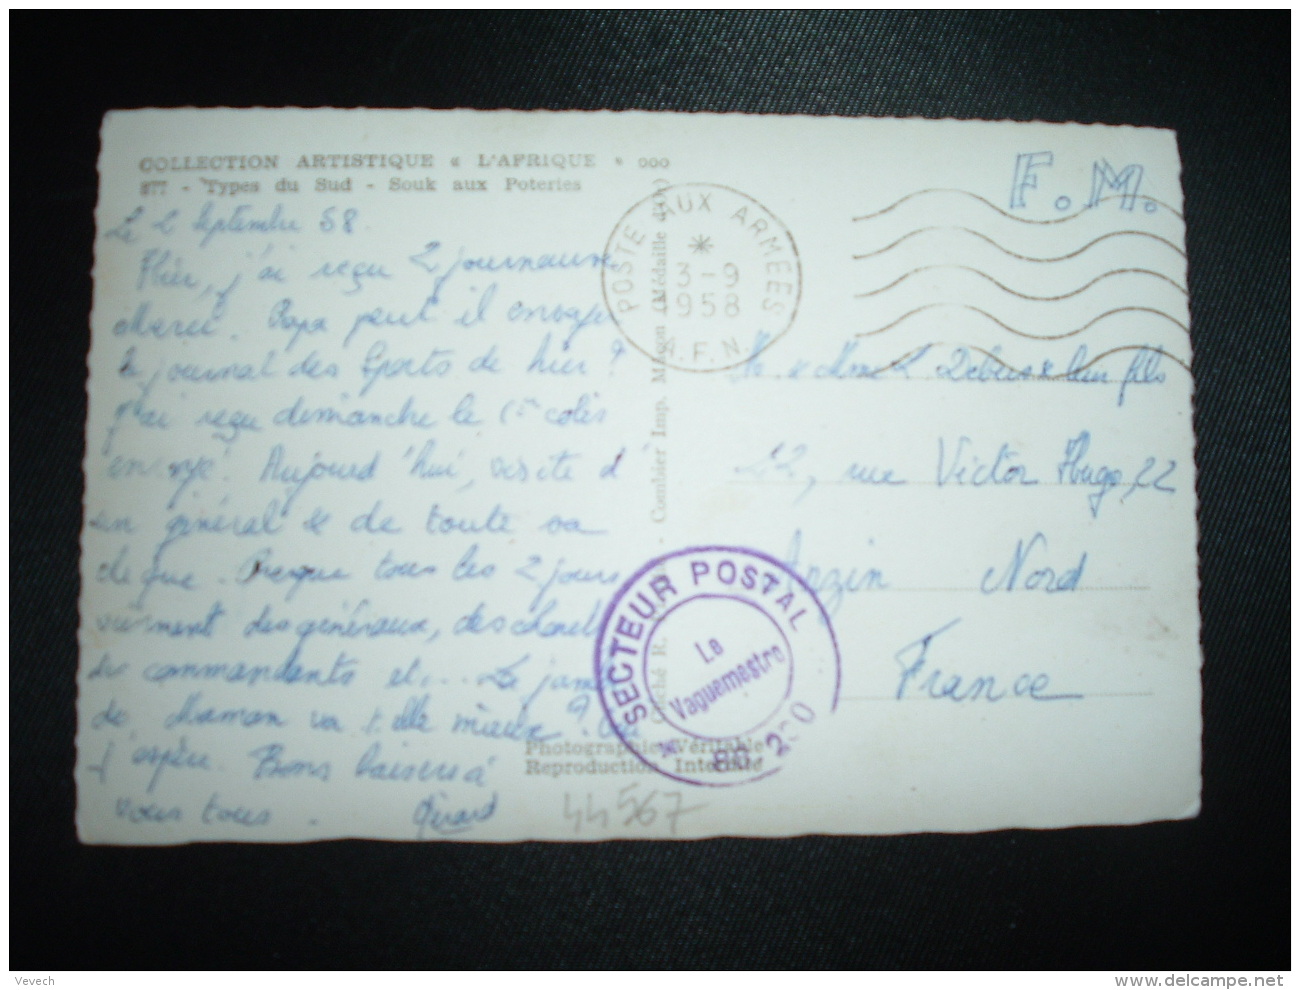 COLLECTION ARTISTIQUE « L'AFRIQUE » ooo
877 - Types du Sud - Souk aux Poteries
Le 2 Septembre 58.
Hier, j'ai reçu 2 journaux
Merci. Papa peut il envoyer
le journal des Sports de hier ?
J'ai reçu dimanche le 1er colis
envoyé. Aujourd'hui, visite d'
un général & de toute sa
clique. Presque tous les 2 jours
viennent des généraux, des
des commandants et... La jambe
de Maman va t-elle mieux ? Oui
j'espère. Bons baisers à
vous tous. Gérard
Combier Imp. Macon (Médaille d'Or)
Cliché R.
Photographie Véritable
Reproduction Interdite
44567
F.M.
POSTE AUX ARMEES
*
3-9
1958
A.F.N.
M. & Mme L. Debus & leur fils
22, rue Victor Hugo, 22
Anzin Nord
France
SECTEUR POSTAL
Le
Vaguemestre
Vevech
www.delcampe.net